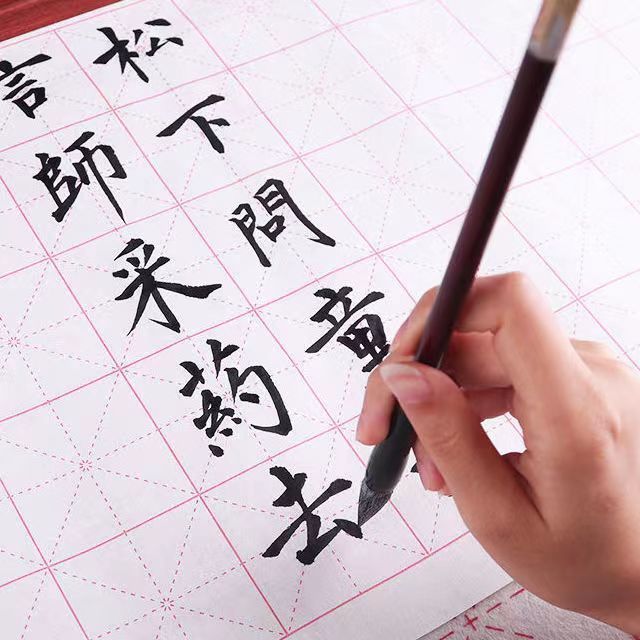 松下問童
言師采葯去